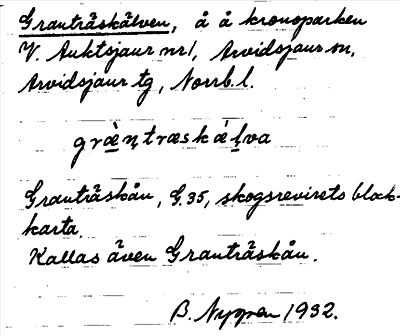 Granträskälven, å å kronoparken
V. Auktsjaur nr 1, Arvidsjaur sn,
Arvidsjaur tg, Norrb. l.
græ̀ṇtræskǽḷva
Granträskån, G.35, skogsrevirets block-
karta.
Kallas även Granträskån.
B. Nygren 1932.